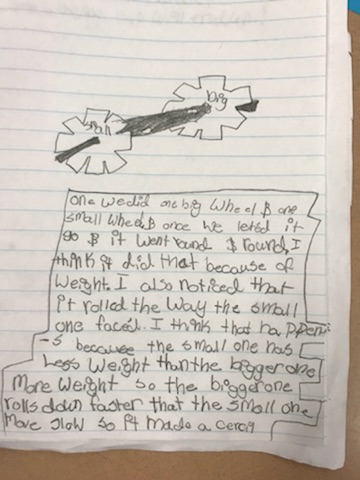 small
big
one we did one big wheel $ one
small wheel $ once we leted it
go $ it went round $ round, I
think it did that because of
weight. I also noticed that
it rolled the way the small
one faced. I think that happeni
-s because the small one has
Less weight than the bigger one
More weight so the bigger one
rolls down faster that the small one
move slow so it made a cercig